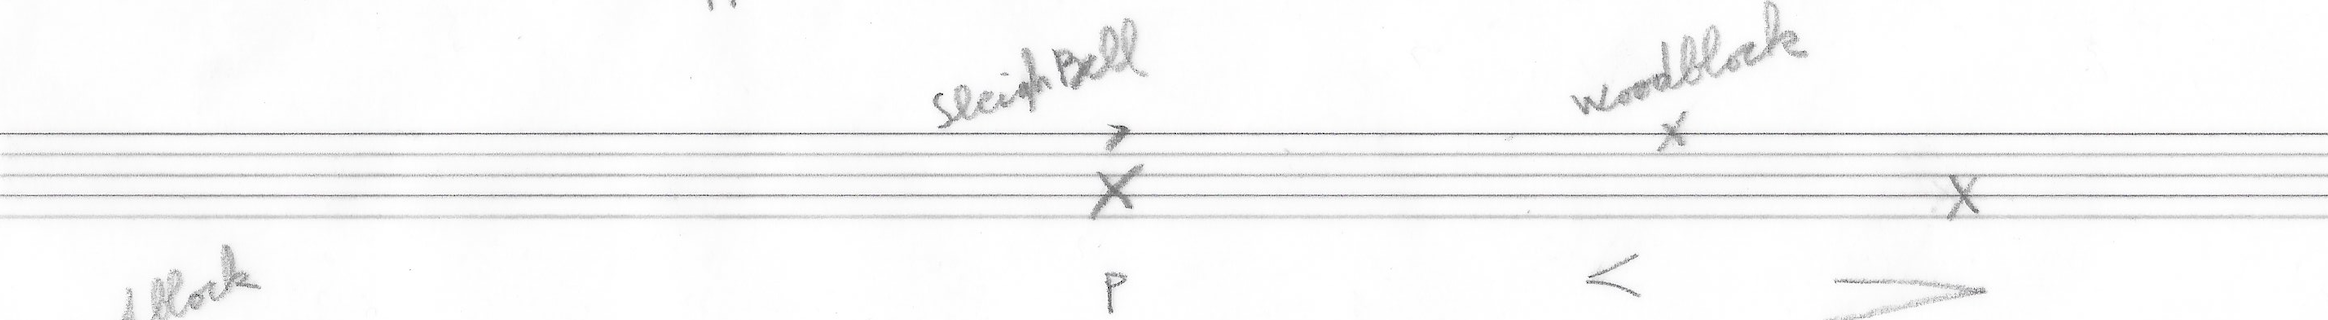 Sleigh Bell
woodblock
P
dblock